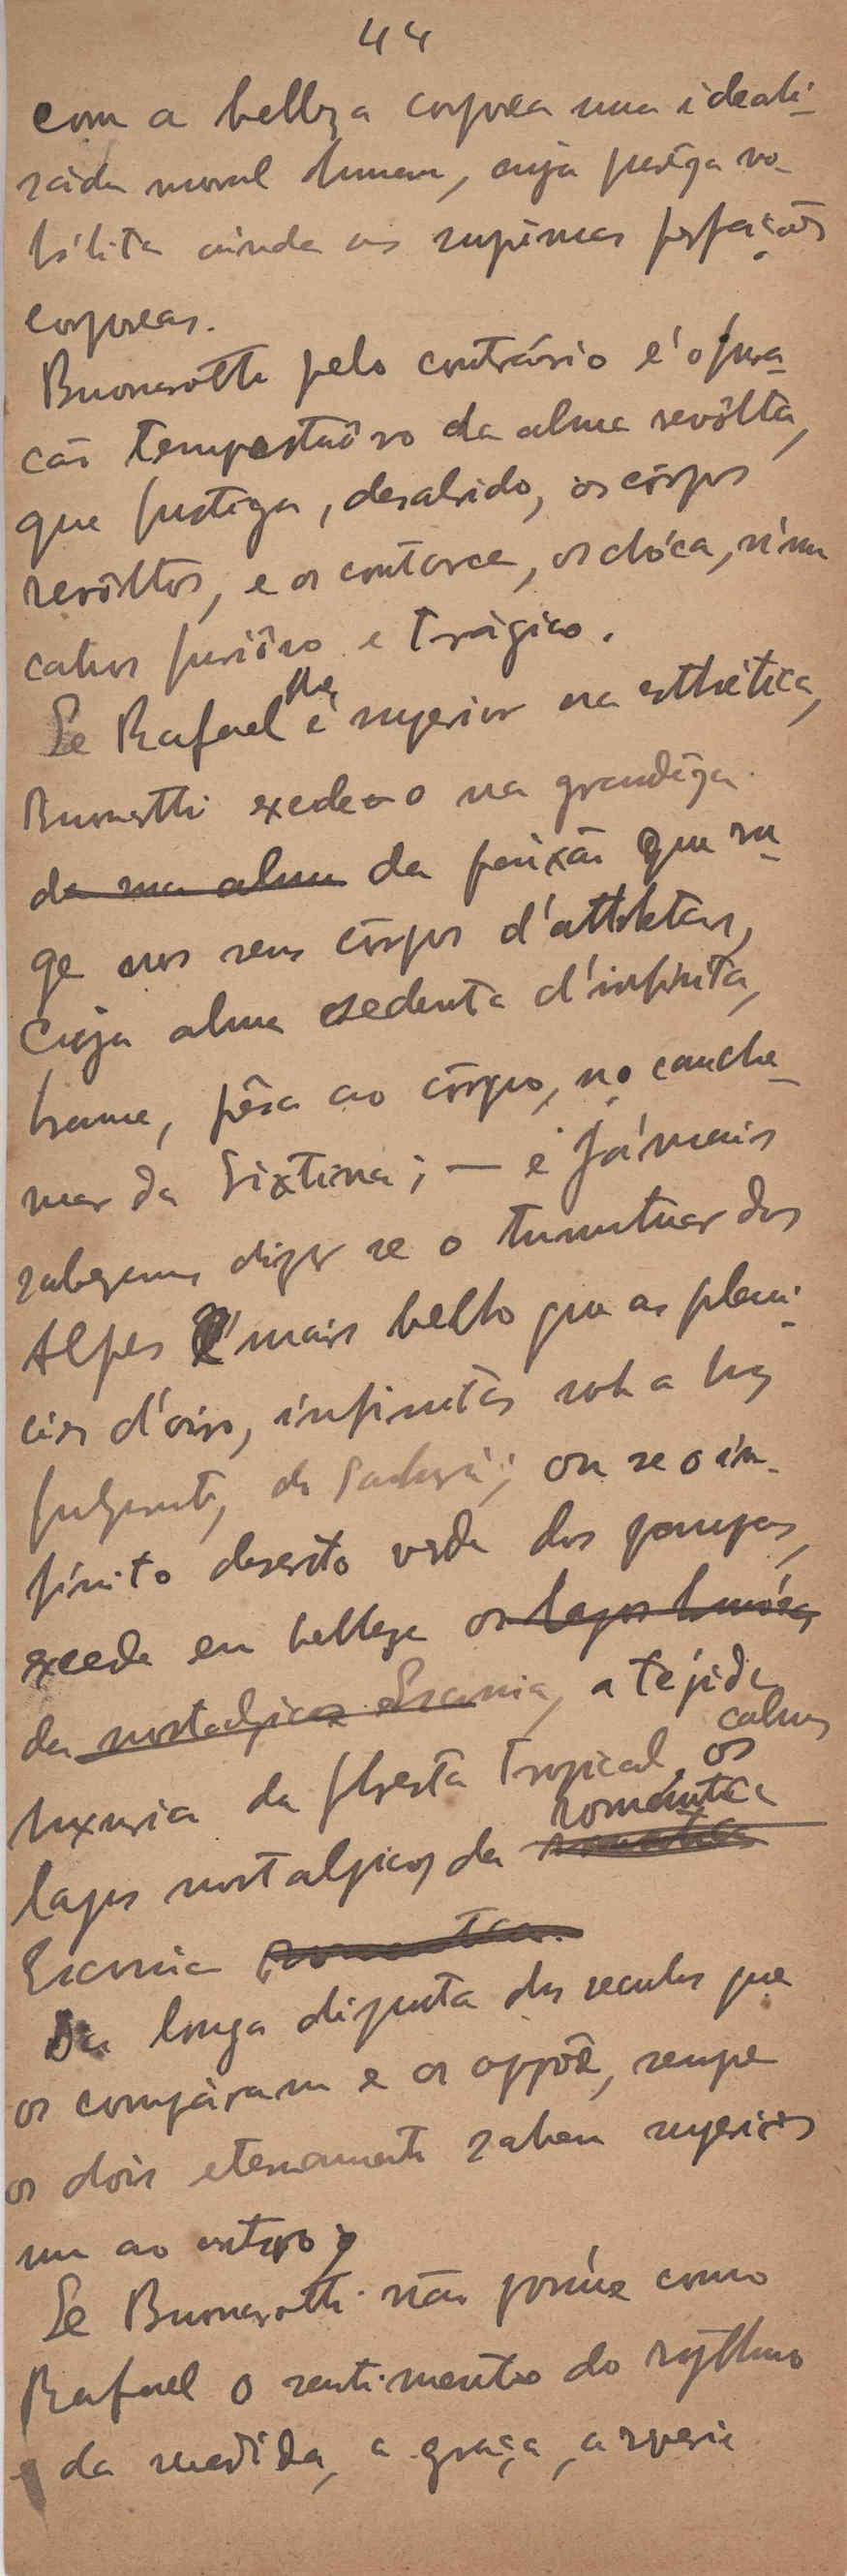 44
com a belleza corporea uma ideali-
zada moral humana, cuja purêza no-
bílita ainda as suprêmas perfeições
corporeas.
Buonarotti pelo contrário é o fura-
cão tempestuôso da alma revôlta,
que fustiga, desabrido, os côrpos
revôltos, e os contorce, os chóca, n'um
cahos furiôso e trágico.
Se Rafael lhe é superior na esthética,
Buonarotti excede-o na grandêza
da sua alma da paixão que ru-
ge nos seus côrpos d'athletas,
cuja alma sedenta d'infinito,
brame, prêsa ao côrpo, no
mar da Sixtina; — e jámais
sabêremos dizer se o tumultuar dos
Alpes é mais bello que as plani-
cies d'oiro, infinitas sob a luz
fulgente, do Sahará; ou se o in-
finito deserto verde dos pampas,
excede em belleza os lagos
da nostalgica Escania, a tépida
luxuria da floresta tropical, os calmos
lagos nostalgicos da romántica
Escania romantica.
Da longa disputa dos seculos que
os compáram e os oppõe, sempre
os dois eternamente sahem superiores
um ao outro;
Se Buonarotti não possúe como
Rafael o sentimento do rythmo
da medida, a graça, a